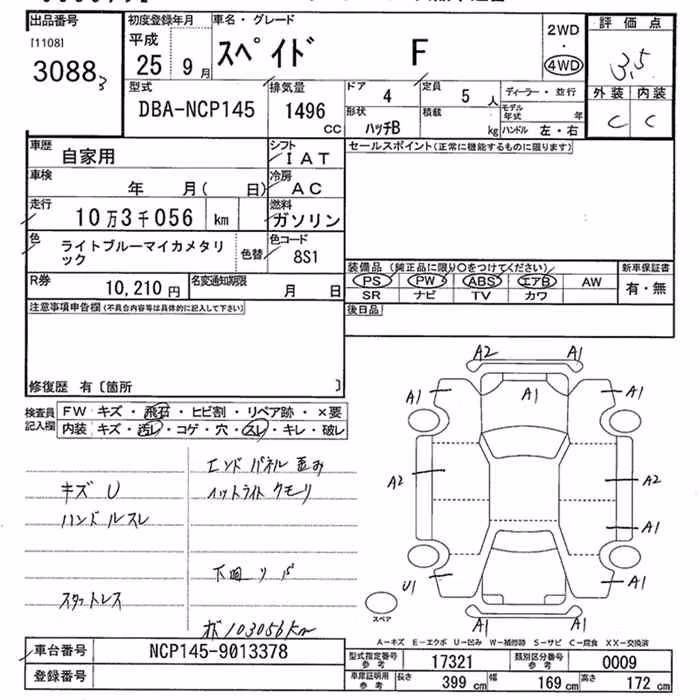 出品番号
[1108]
3088 3
初度登録年月
平成
25 9 月
車名・グレード
スペイド F
2WD
・
4WD
評価点
3.5
外装 内装
C C
型式
DBA-NCP145
排気量
1496
CC
ドア
4
定員
5 人
形状
ハッチB
積載
kg
ディーラー・並行
モデル年式 年
ハンドル 左・右
車歴
自家用
シフト
IAT
セールスポイント(正常に機能するものに限ります)
車検
年 月( 日)
冷房
AC
走行
10万3千056 km
燃料
ガソリン
色
ライトブルーマイカメタリック
色替
色コード
8S1
装備品 (純正品に限り○をつけてください)
新車保証書
PS PW ABS エアB AW
有・無
SR ナビ TV カワ
R券
10,210 円
名変通知期限
月 日
後日品
注意事項申告欄(不具合内容等は具体的に記入して下さい)
修復歴 有〔箇所 〕
検査員記入欄
FW キズ・飛石・ヒビ割・リペア跡・×要
内装 キズ・汚レ・コゲ・穴・スレ・キレ・破レ
エンドパネル歪み
キズ U
ヘッドライト クモリ
ハンドルスレ
下回 サビ
スタットレス
103056km
A2 A1
A1 A1 A1
A2 A2
A1
U1 A1
A1 A1
スペア
A-キズ E-エクボ U-凹み W-補修跡 S-サビ C-腐食 XX-交換済
車台番号
NCP145-9013378
登録番号
型式指定番号 参考
17321
類別区分番号 参考
0009
車庫証明用 参考
長さ 399 cm
幅 169 cm
高さ 172 cm